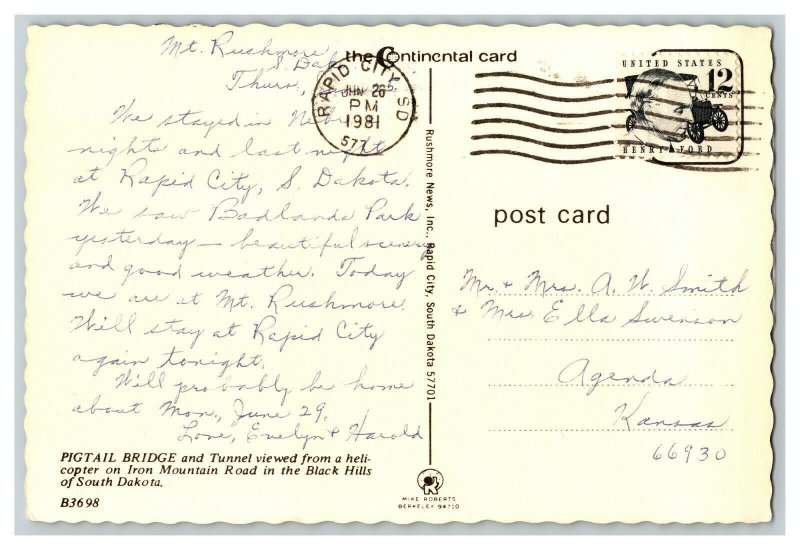 Mt. Rushmore
S. Dak
Thurs,
We stayed in
nights and last night
at Rapid City, S. Dakota.
We saw Badlands Park
yesterday — beautiful scenery
and good weather. Today
we are at Mt. Rushmore.
Will stay at Rapid City
again tonight.
Will probably be home
about Mon., June 29.
Love, Evelyn & Harold
PIGTAIL BRIDGE and Tunnel viewed from a heli-
copter on Iron Mountain Road in the Black Hills
of South Dakota.
B3698
the Continental card
RAPID CITY SD
JUN 26
PM
1981
577
Rushmore News, Inc., Rapid City, South Dakota 57701
MIKE ROBERTS
BERKELEY 94710
UNITED STATES
12
CENTS
HENRY FORD
post card
Mr. & Mrs. A. W. Smith
& Mrs. Ella Swenson
Agenda
Kansas
66930